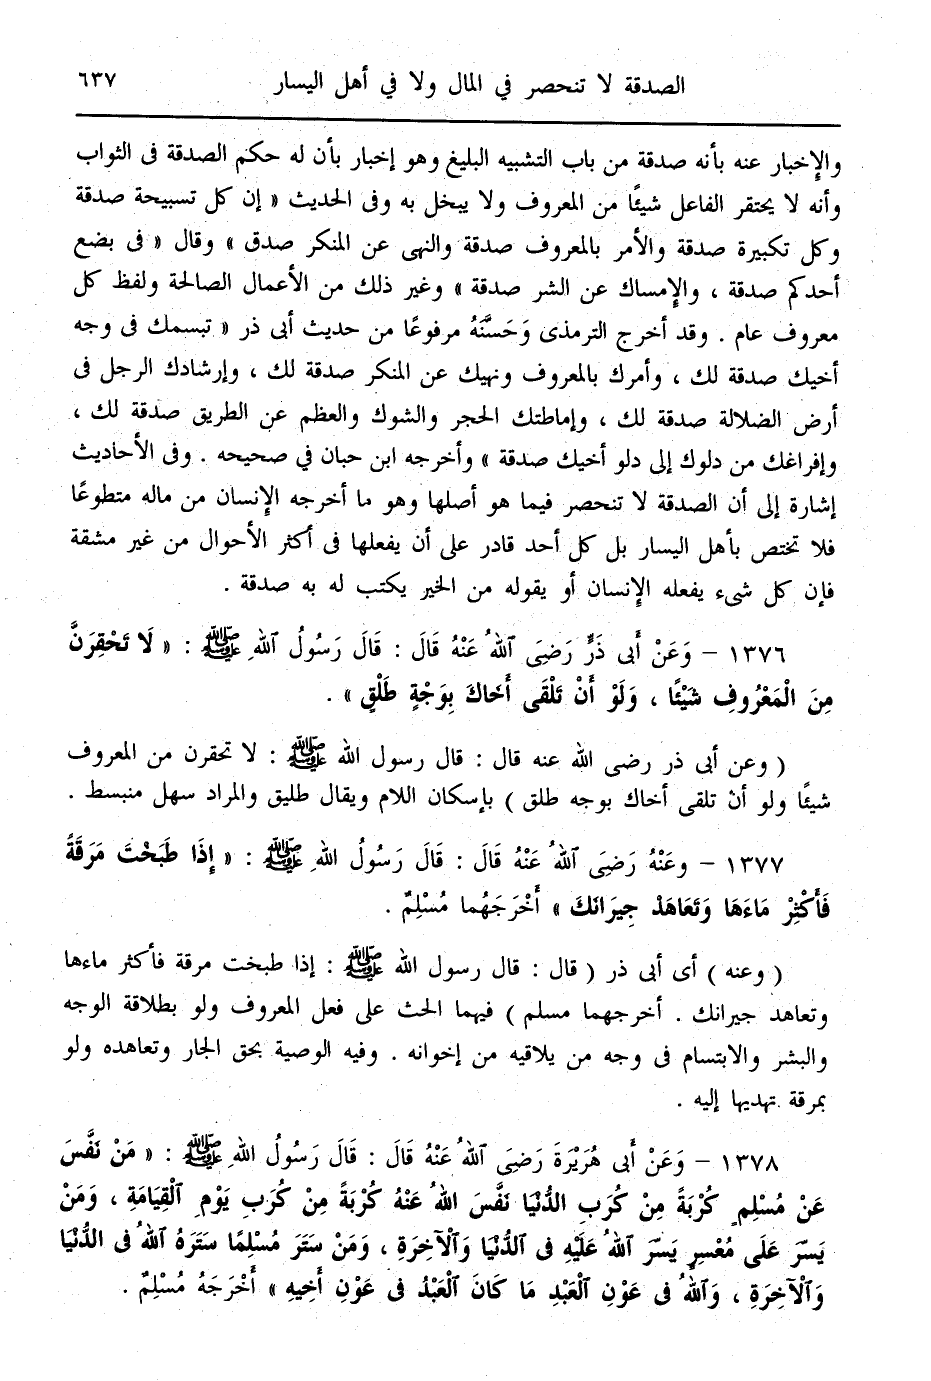 الصدقة لا تنحصر في المال ولا في أهل اليسار ٦٣٧
والإخبار عنه بأنه صدقة من باب التشبيه البليغ وهو إخبار بأن له حكم الصدقة فى الثواب
وأنه لا يحتقر الفاعل شيئًا من المعروف ولا يبخل به وفى الحديث « إن كل تسبيحة صدقة
وكل تكبيرة صدقة والأمر بالمعروف صدقة والنهى عن المنكر صدق » وقال « فى بضع
أحدكم صدقة ، والإمساك عن الشر صدقة » وغير ذلك من الأعمال الصالحة ولفظ كل
معروف عام . وقد أخرج الترمذى وَحَسَّنَهُ مرفوعًا من حديث أبى ذر « تبسمك فى وجه
أخيك صدقة لك ، وأمرك بالمعروف ونهيك عن المنكر صدقة لك ، وإرشادك الرجل فى
أرض الضلالة صدقة لك ، وإماطتك الحجر والشوك والعظم عن الطريق صدقة لك ،
وإفراغك من دلوك إلى دلو أخيك صدقة » وأخرجه ابن حبان في صحيحه . وفى الأحاديث
إشارة إلى أن الصدقة لا تنحصر فيما هو أصلها وهو ما أخرجه الإنسان من ماله متطوعًا
فلا تختص بأهل اليسار بل كل أحد قادر على أن يفعلها فى أكثر الأحوال من غير مشقة
فإن كل شىء يفعله الإنسان أو يقوله من الخير يكتب له به صدقة .
١٣٧٦ – وَعَنْ أَبى ذَرٍّ رَضِىَ ٱللهُ عَنْهُ قَالَ : قَالَ رَسُولُ ٱللهِ ﷺ : « لَا تَحْقِرَنَّ
مِنَ الْمَعْرُوفِ شَيْئًا ، وَلَوْ أَنْ تَلْقَى أَخَاكَ بِوَجْهٍ طَلْقٍ » .
( وعن أبى ذر رضى الله عنه قال : قال رسول الله ﷺ : لا تحقرن من المعروف
شيئًا ولو أن تلقى أخاك بوجه طلق ) بإسكان اللام ويقال طليق والمراد سهل منبسط .
١٣٧٧ – وعَنْهُ رَضِىَ ٱللهُ عَنْهُ قَالَ : قَالَ رَسُولُ اللهِ ﷺ : « إِذَا طَبَخْتَ مَرَقَةً
فَأَكْثِرْ مَاءَهَا وَتَعَاهَدْ جِيرَانَكَ » أَخْرَجَهُما مُسْلِمٌ .
( وعنه ) أى أبى ذر ( قال : قال رسول الله ﷺ : إذا طبخت مرقة فأكثر ماءها
وتعاهد جيرانك . أخرجهما مسلم ) فيهما الحث على فعل المعروف ولو بطلاقة الوجه
والبشر والابتسام فى وجه من يلاقيه من إخوانه . وفيه الوصية بحق الجار وتعاهده ولو
بمرقة تهديها إليه .
١٣٧٨ – وَعَنْ أَبى هُرَيْرَةَ رَضِىَ ٱللهُ عَنْهُ قَالَ : قَالَ رَسُولُ اللهِ ﷺ : « مَنْ نَفَّسَ
عَنْ مُسْلِمٍ كُرْبَةً مِنْ كُرَبِ الدُّنْيَا نَفَّسَ اللهُ عَنْهُ كُرْبَةً مِنْ كُرَبِ يَوْمِ ٱلْقِيَامَةِ ، وَمَنْ
يَسَّرَ عَلَى مُعْسِرٍ يَسَّرَ ٱللهُ عَلَيْهِ فى ٱلدُّنْيَا وَٱلْآخِرَةِ ، وَمَنْ سَتَرَ مُسْلِمًا سَتَرَهُ ٱللهُ فى الدُّنْيَا
وَٱلْآخِرَةِ ، وَٱللهُ فى عَوْنِ ٱلْعَبْدِ مَا كَانَ ٱلْعَبْدُ فى عَوْنِ أَخِيهِ » أَخْرَجَهُ مُسْلِمٌ .